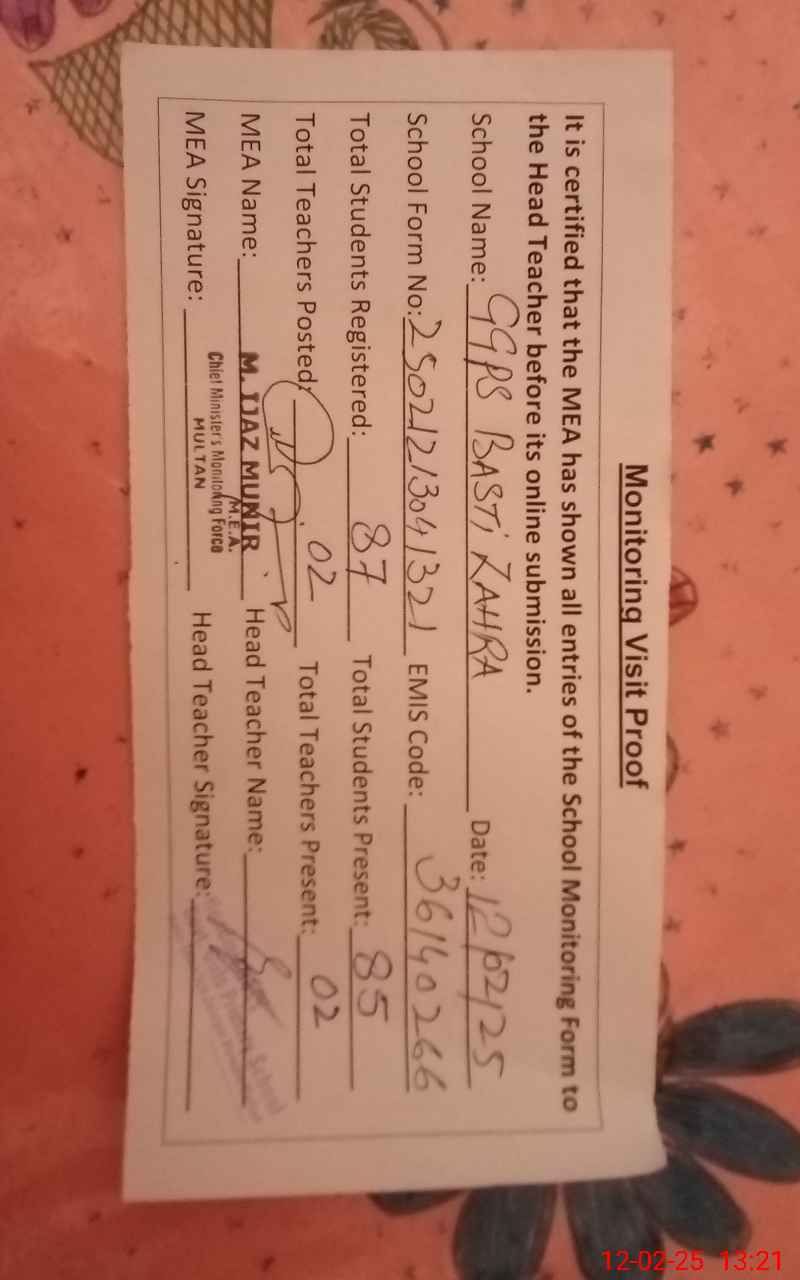 Monitoring Visit Proof
It is certified that the MEA has shown all entries of the School Monitoring Form to
the Head Teacher before its online submission.
School Name: GGPS BASTI ZAHRA Date: 12/02/25
School Form No: 25021213041321 EMIS Code: 36140266
Total Students Registered: 87 Total Students Present: 85
Total Teachers Posted: 02 Total Teachers Present: 02
MEA Name: M. IJAZ MUNIR Head Teacher Name:
M.E.A.
Chief Minister's Monitoring Force
MULTAN
MEA Signature: Head Teacher Signature:
Primary School
12-02-25 13:21